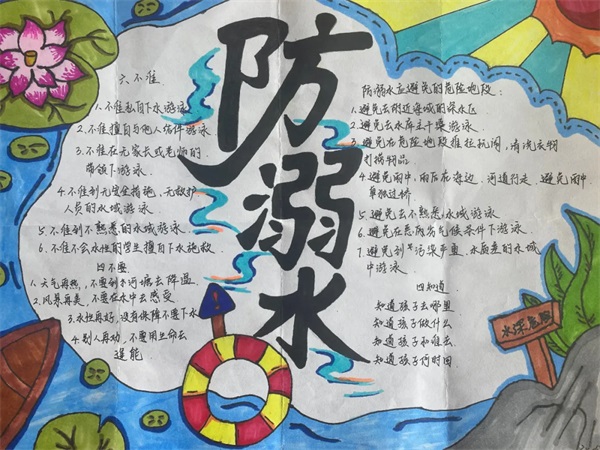 防溺水
六不准
1.不准私自下水游泳
2.不准擅自与他人结伴游泳
3.不准在无家长或老师的
带领下游泳
4.不准到无安全措施、无救护
人员的水域游泳
5.不准到不熟悉的水域游泳
6.不准不会水性的学生擅自下水施救
四不要
1.天气再热,不要到污塘去降温
2.风景再美,不要在水中去感受
3.水性再好,没有保障不要下水
4.别人再劝,不要用生命去
逞能
防溺水应避免的危险地段:
1.避免去附近海域的深水区
2.避免去水库主干渠游泳
3.避免在危险地段推拉玩闹,清洗衣物
打捞物品
4.避免雨中,雨后在海边,河道行走,避免雨中
单独过桥
5.避免去不熟悉水域游泳
6.避免在恶劣天气候条件下游泳
7.避免到污染严重,水质差的水域
中游泳
四知道
知道孩子去哪里
知道孩子做什么
知道孩子和谁去
知道孩子何时回
水深危险